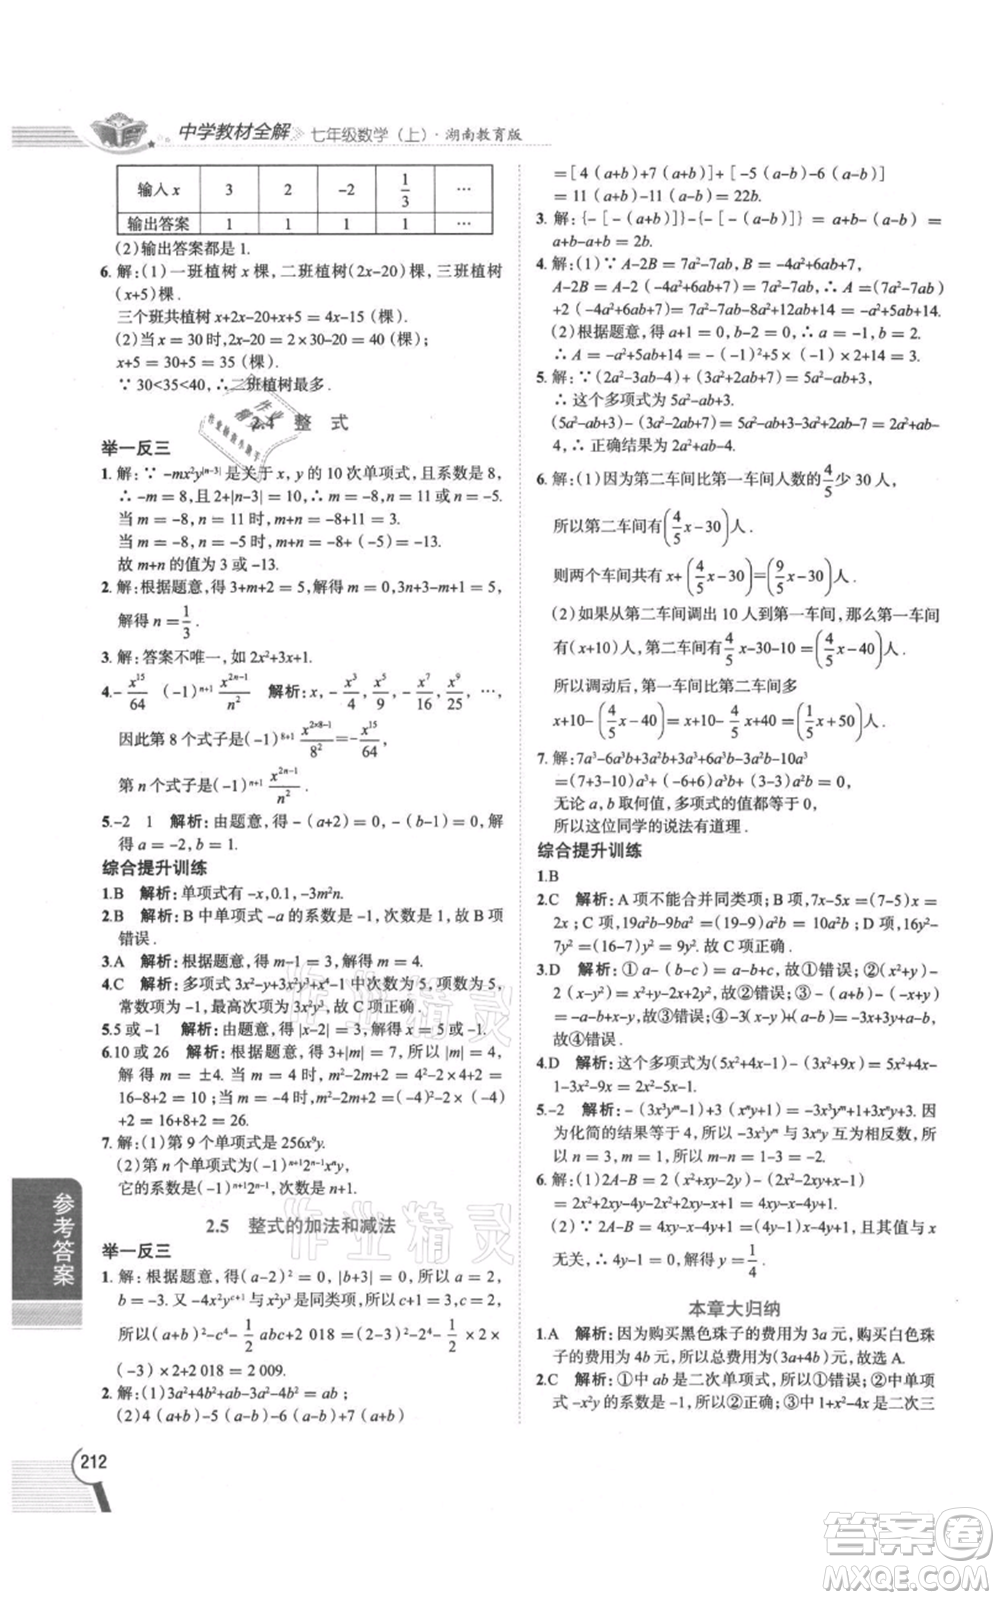 中学教材全解 七年级数学（上）·湖南教育版
输入x 3 2 -2 1/3 …
输出答案 1 1 1 1 …
(2)输出答案都是1.
6.解:(1)一班植树x棵,二班植树(2x-20)棵,三班植树
(x+5)棵.
三个班共植树x+2x-20+x+5=4x-15(棵).
(2)当x=30时,2x-20=2×30-20=40(棵),
x+5=30+5=35(棵).
∵30<35<40,∴二班植树最多.
2.4 整 式
举一反三
1.解:∵-mx²y^|n-3|是关于x,y的10次单项式,且系数是8,
∴-m=8,且2+|n-3|=10,∴m=-8,n=11或n=-5.
当m=-8,n=11时,m+n=-8+11=3,
当m=-8,n=-5时,m+n=-8+(-5)=-13.
故m+n的值为3或-13.
2.解:根据题意,得3+m+2=3n-(-m)+1+n=5,
解得n=1/3.
3.解:答案不唯一,如2x²+3x+1.
4.-x¹⁵/64 (-1)ⁿ⁺¹ x²ⁿ⁻¹/n² 解析:x,-x³/4,x⁵/9,-x⁷/16,x⁹/25,…,
因此第8个式子是(-1)⁸⁺¹ x²ˣ⁸⁻¹/8²=-x¹⁵/64,
第n个式子是(-1)ⁿ⁺¹ x²ⁿ⁻¹/n².
5.-2 1 解析:由题意,得-(a+2)=0,-(b-1)=0,
解得a=-2,b=1.
综合提升训练
1.B 解析:单项式有-x,0.1,-3m²n.
2.B 解析:B中单项式-a的系数是-1,次数是1,故B项
错误.
3.A 解析:根据题意,得m-1+2=2+2,解得m=3.
4.C 解析:多项式3x²-2xy³+x⁴-1中次数为5,项数为4,
常数项为-1,最高次项为-2xy³,故C项正确.
5.5或-1 解析:由题意,得|x-2|=3,解得x=5或-1.
6.10或26 解析:由题意,得3+|m|=7,所以|m|=4,解得
m=±4.当m=4时,m²-2m+2=4²-2×4+2=
16-8+2=10;当m=-4时,m²-2m+2=(-4)²-2×(-4)
+2=16+8+2=26.
7.解:(1)第9个单项式是256x⁹y.
(2)第n个单项式为(-1)ⁿ⁺¹2ⁿ⁻¹xⁿy,
它的系数是(-1)ⁿ⁺¹2ⁿ⁻¹,次数是n+1.
2.5 整式的加法和减法
举一反三
1.解:根据题意,得(a-2)²=0,|b+3|=0,所以a=2,
b=-3.又-4x²yᶜ⁺¹是三次单项式,所以c+1=1,所以c=
0,所以aᵇ-abc+2 018=2⁻³-2×(-3)×0+2 018=1/2×2×
(-3)×2+2 018=2 009.
2.解:(1)3a²+4b²+ab-4a²-3b²=-a²+ab+b².
(2)4(a+b)-5(a-b)-6(a-b)+7(a+b)
=[4(a+b)+7(a+b)]+[-5(a-b)-6(a-b)]
=11(a+b)-11(a-b)=22b.
3.解:{-[-(a+b)]}-{-[-(a-b)]}=a+b-(a-b)=
a+b-a+b=2b.
4.解:(1)∵A-2B=7a²-7ab,B=-4a²+6ab+7,
A-2B=A-2(-4a²+6ab+7)=7a²-7ab,∴A=(7a²-7ab)
+2(-4a²+6ab+7)=7a²-7ab-8a²+12ab+14=-a²+5ab+14.
(2)根据题意,得a+1=0,b-2=0,∴a=-1,b=2.
∴A=-a²+5ab+14=-(-1)²+5×(-1)×2+14=3.
5.解:∵(2a²-ab+7)+(3a²-4)=5a²-ab+3,
∴这个多项式为5a²-ab+3.
(5a²-ab+3)+(3a²-4)=8a²-ab-1,
∴正确结果为8a²-ab-1.
6.解:(1)因为第二车间比第一车间人数的4/5少30人,
所以第二车间有(4/5x-30)人.
则两个车间共有x+(4/5x-30)=(9/5x-30)人.
(2)如果从第二车间调出10人到第一车间,那么第一车间
有(x+10)人,第二车间有4/5x-30-10=(4/5x-40)人,
所以调动后,第一车间比第二车间多
x+10-(4/5x-40)=x+10-4/5x+40=(1/5x+50)人.
7.解:7a³-6a³b+3a²b+3a³+6a³b-3a²b-10a³
=(7+3-10)a³+(-6+6)a³b+(3-3)a²b=0,
无论a,b取何值,多项式的值都等于0,
所以这位同学的说法有道理.
综合提升训练
1.B
2.C 解析:A项不能合并同类项;B项,7x-5x=(7-5)x=
2x;C项,19a²b-9ba²=(19-9)a²b=10a²b;D项,16y²-
7y²=(16-7)y²=9y².故C项正确.
3.D 解析:①a-(b-c)=a-b+c,故①错误;②(x²+y)-
2(x-y²)=x²+y-2x+2y²,故②错误;③-(a+b)-(-x+y)
=-a-b+x-y,故③错误;④-3(x-y)+(a-b)=-3x+3y+a-b,
故④错误.
4.D 解析:这个多项式为(5x²+4x-1)-(3x²+9x)=5x²+4x
-1-3x²-9x=2x²-5x-1.
5.-2 解析:-(3x³yᵐ-1)+3(xⁿy+1)=-3x³yᵐ+1+3xⁿy+3.因
为化简的结果等于4,所以-3x³yᵐ与3xⁿy互为相反数,所以
n=3,m=1,所以m-n=1-3=-2.
6.解:(1)2A-B=2(x²+2xy-2y)-(2x²-x-1)
=2x²+4xy-4y-2x²+x+1=4xy+x-4y+1.
(2)∵2A-B=4xy+x-4y+1=(4y+1)x-4y+1,且其值与x
无关,∴4y+1=0,解得y=-1/4.
本章大归纳
1.A 解析:因为购买黑色珠子的费用为3a元,购买白色珠
子的费用为4b元,所以总费用为(3a+4b)元,故选A.
2.C 解析:①中ab是二次单项式,所以①错误;②中单项
式-x²y的系数是-1,所以②正确;③中1+x²-4x是二次三
参考答案
212
作业精灵
作业精灵
答案卷
MXQE.COM